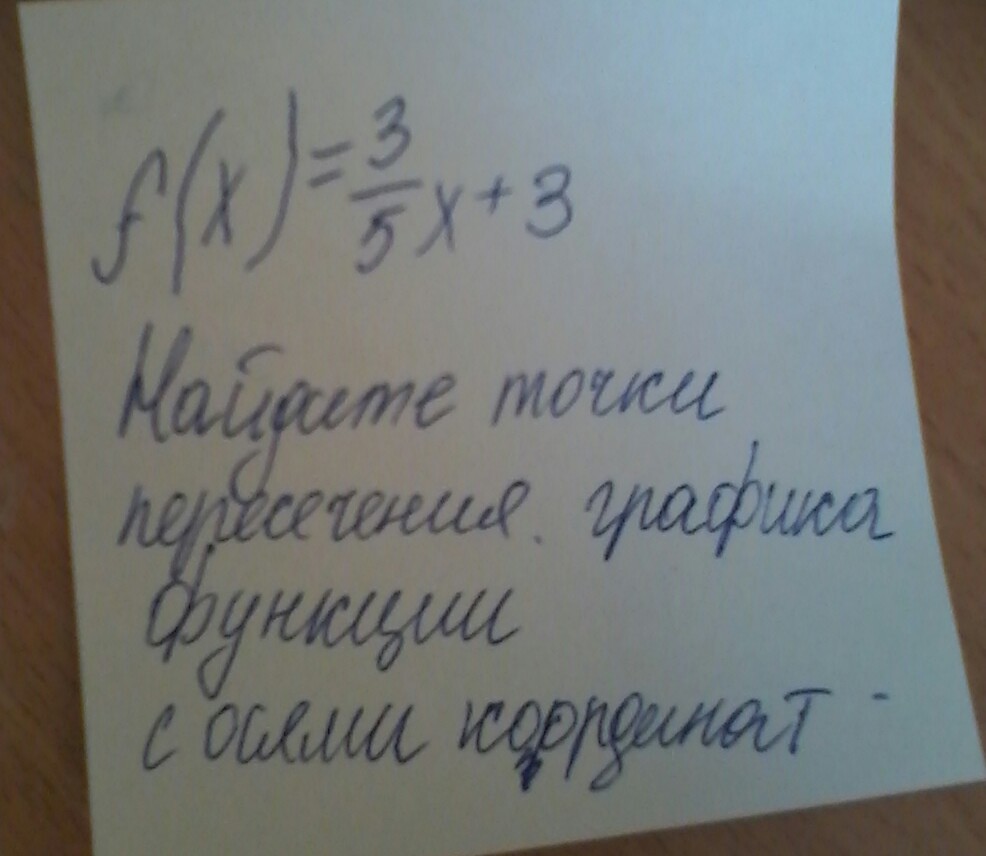 f(x)=3/5x+3
Найдите точки
пересечения графика
функции
с осями координат